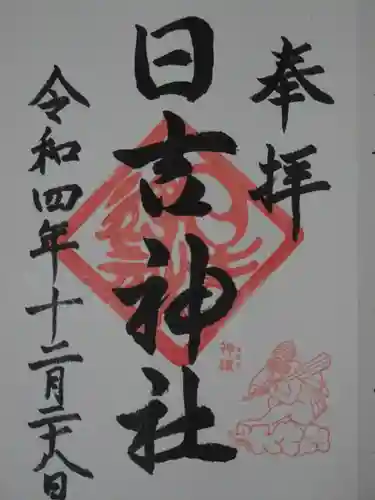 奉拝
日吉神社
令和四年十二月二十八日
神猿